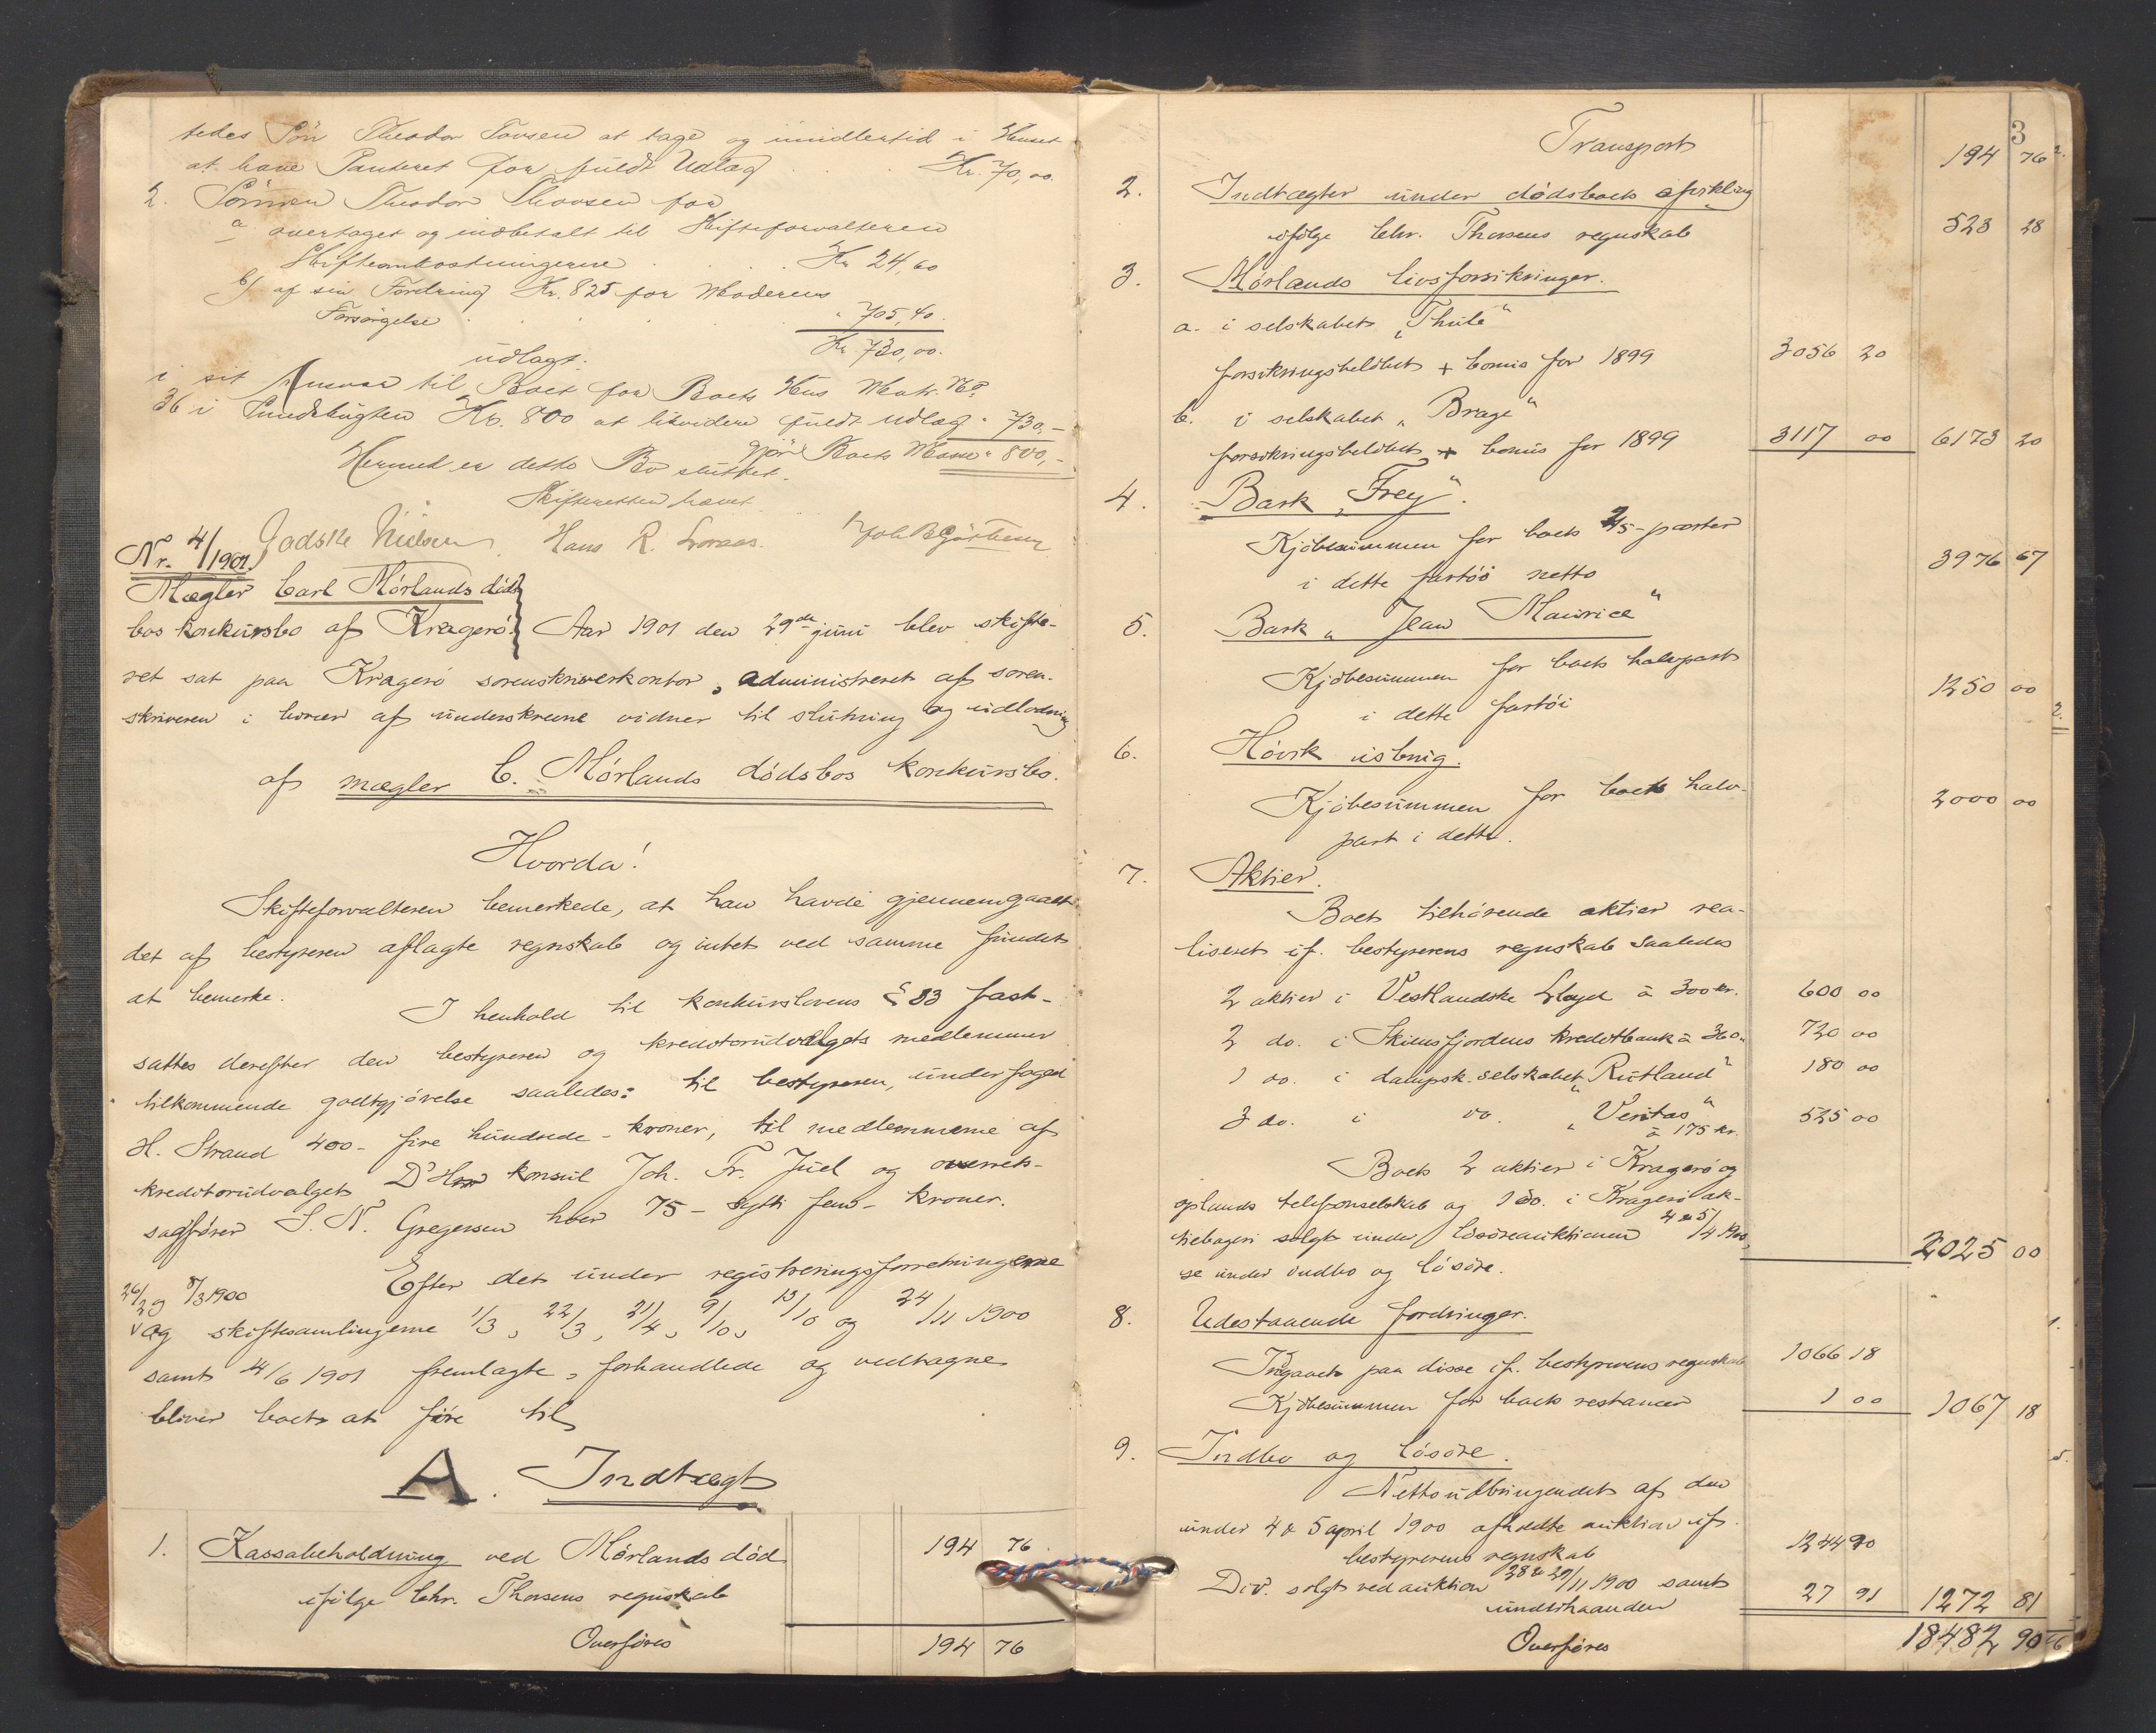 tedes Søn Theodor Tovsen at tage og imidlertid i Huset
at have Panteret for fuldt Udlæg . . Kr. 70,00.
2. Sønnen Theodor Thovsen for
a. overtaget og indbetalt til Skifteforvalteren
Skifteomkostningerne . . . Kr 24,60
b) af sin Fordring Kr. 825 for Moderens
Forsørgelse . . . . " 705,40.
Kr 730,00.
udlagt.
i sit Ansvar til Boet for Boets Hus Matr. No
36 i Smedsbugten Kr. 800 at likvidere fuldt udlæg " 730,-
gjør Boets Masse " 800,-
Hermed er dette Bo sluttet.
Skifteretten hævet
Gadske Nielsen. Hans R. Loraas.
Nr. 4/1901.
Mægler Carl Mørlands døds
bos konkursbo af Kragerø. Aar 1901 den 29de juni blev skifte-
ret sat paa Kragerø sorenskriverkontor, administreret af soren-
skriveren i nærvær af underskrevne vidner til slutning og udlodning
af mægler C. Mørlands dødsbos konkursbo.
Hvorda!
Skifteforvalteren bemerkede, at han havde gjennemgaaet
det af bestyreren aflagte regnskab og intet ved samme fundet
at bemerke.
I henhold til konkurslovens § 33 fast-
sattes derefter den bestyreren og kreditorudvalgets medlemmer
tilkommende godtgjørelse saaledes: til bestyreren, underfoged
H. Strand 400 - fire hundrede - kroner, til medlemmerne af
kreditorudvalget D'Hrr konsul Joh. Fr. Juel og overrets-
sagfører S. N. Gregersen hver 75 - sytti fem - kroner.
Efter det under registreringsforretningerne
26/2 og 8/3 1900
og skiftesamlingerne 1/3, 22/3, 21/4, 9/10, 13/10 og 24/11 1900
samt 4/6 1901 fremlagte, forhandlede og vedtagne
bliver boet at føre til
A. Indtægt
1. Kassabeholdning ved Mørlands død 194 76
ifølge Chr. Thorsens regnskab
Overføres 194 76
3
Transport 194 76
2. Indtægter under dødsboets afvikling
ifølge Chr. Thorsens regnskab 523 28
3. Mørlands livsforsikringer.
a. i selskabet „Thule“
forsikringsbeløbet + bonus for 1899 3056 20
b. i selskabet „Brage“
forsikringsbeløbet + bonus for 1899 3117 00 6173 20
4. Bark „Frey“.
Kjøbesummen for boets 2/5-parter
i dette fartøi netto 3976 67
5. Bark „Jean Maurice“
Kjøbesummen for boets halvpart
i dette fartøi 1250 00
6. Høvik isbrug.
Kjøbesummen for boets halv-
part i dette. 2000 00
7. Aktier.
Boet tilhørende aktier rea-
liseret if. bestyrerens regnskab saaledes
2 aktier i Vestlandske Lloyd à 300 kr. 600 00
2 do. i Skiensfjordens kreditbank à 360 " 720 00
1 do. i dampsk. selskabet „Rutland“ 180 00
3 do. i do. „Veritas“
à 175 kr. 525 00
Boets 2 aktier i Kragerø og
oplands telefonselskab og 1 do. i Kragerø ak-
tiebageri solgt under løsøreauktionen 4 & 5/4 1900,
se under indbo og løsøre. 2025 00
8. Udestaaende fordringer.
Indgaaet paa disse if. bestyrerens regnskab 1066 18
Kjøbesummen for boets restancer 1 00 1067 18
9. Indbo og løsøre.
Nettoudbringendet af den
under 4 & 5 april 1900 afholdte auktion if.
bestyrerens regnskab 1244 90
Div. solgt ved auktion 28 & 29/11 1900 samt
underhaanden 27 91 1272 81
Overføres 18482 90